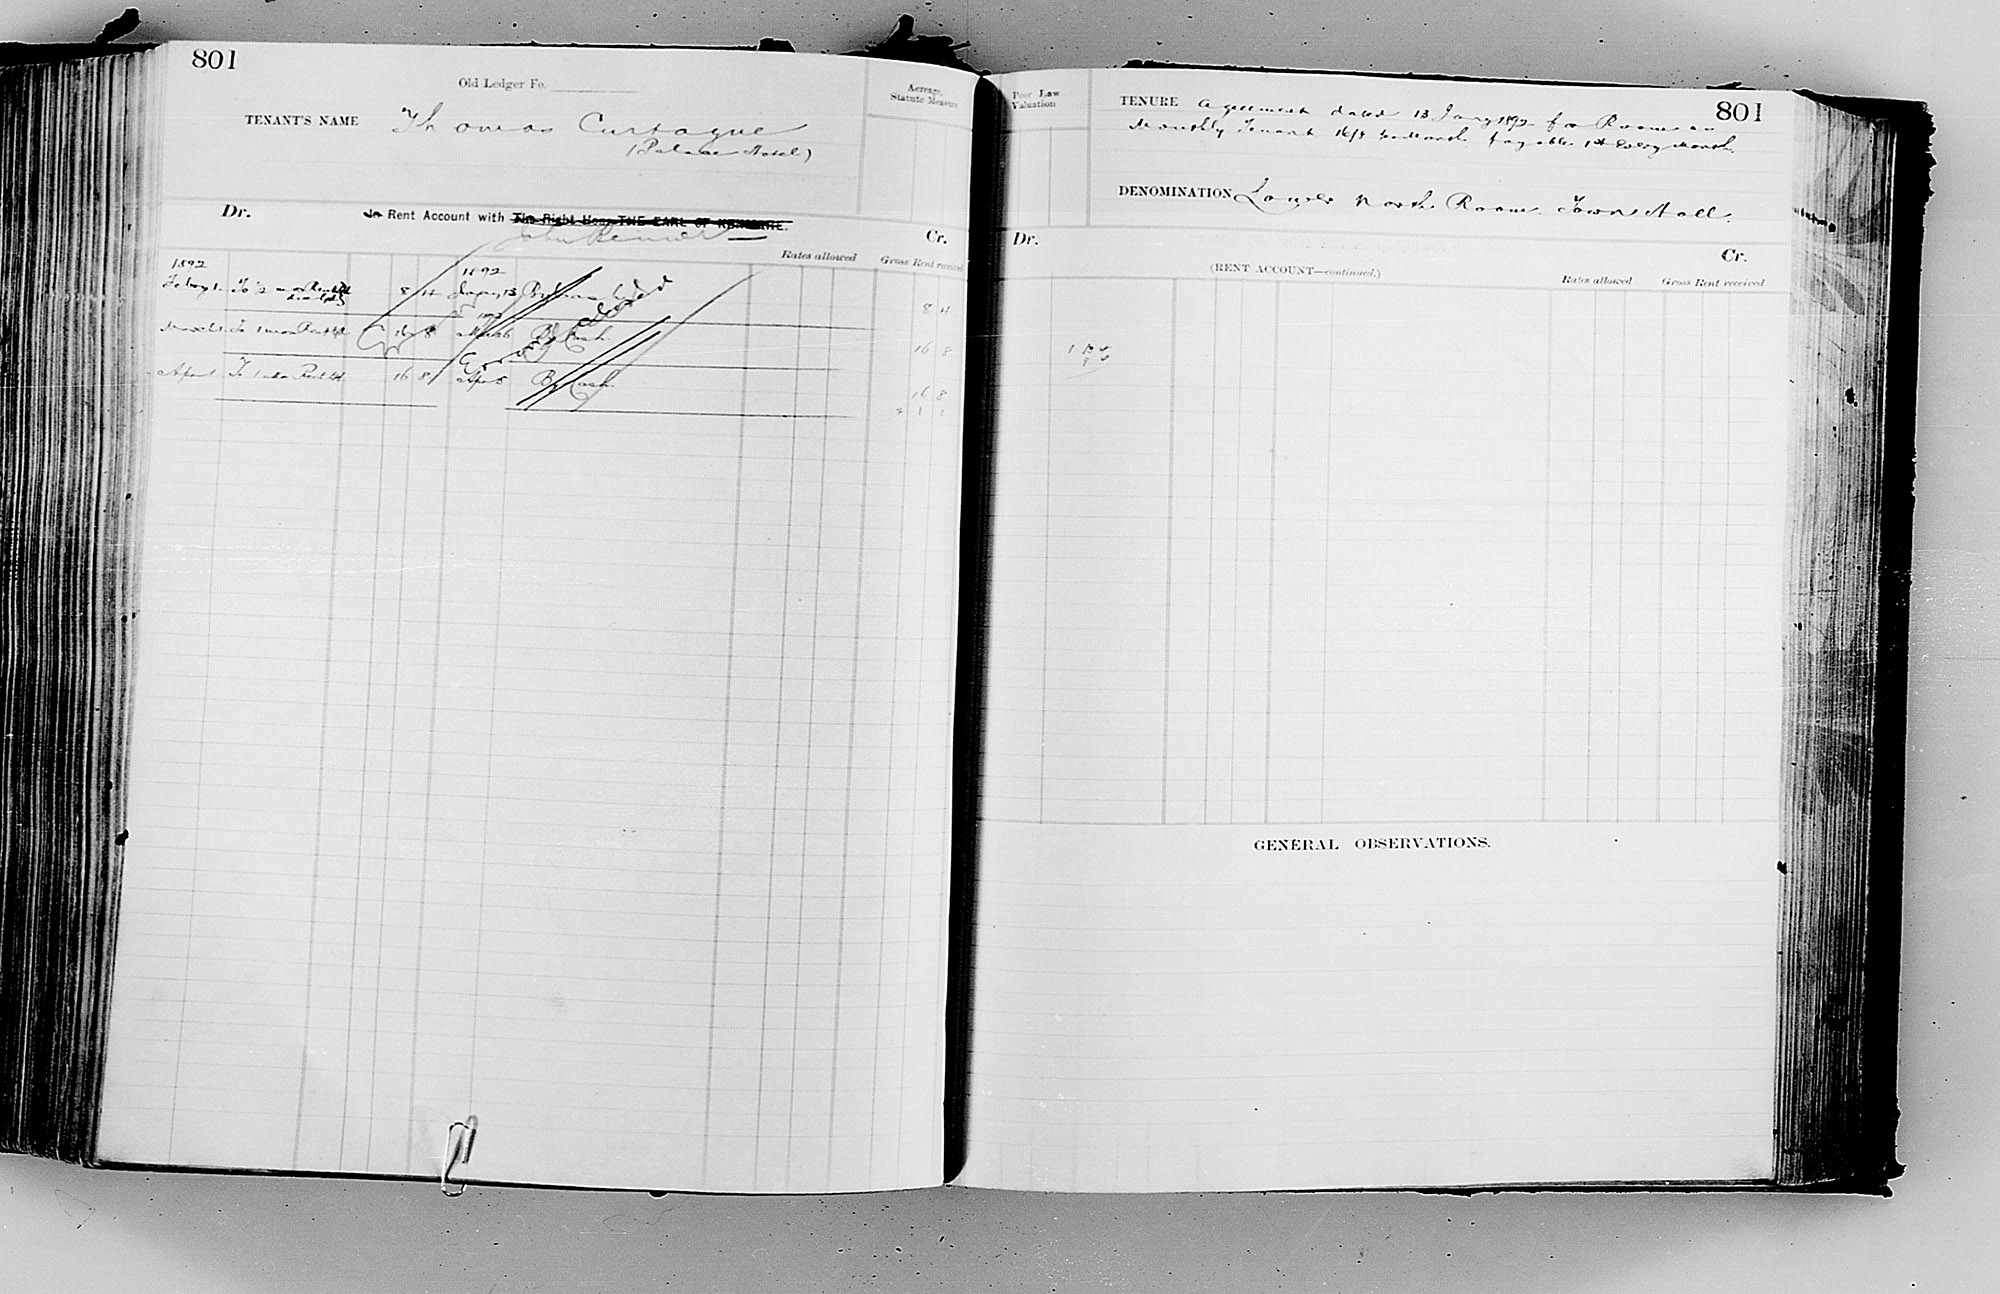 801
Old Ledger Fo.
Acreage, Statute Measure
TENANT'S NAME Thomas Curtayne
(Palace Hotel)
Dr. In Rent Account with The Right Hon. THE EARL OF KENMARE. Cr.
Rates allowed Gross Rent received
1892 1892
Febry 1 To ½ mon Rent 8 4 Jany 13 By 8 4
March 1 To 1 mon Rent 16 8 March 6 By Cash 16 8
April To 1 mon Rent 16 8 Apr 5 By Cash 16 8
801
Poor Law Valuation
TENURE Agreement dated 13 Jany 1892 for Room as
Monthly Tenant 16/8 per Month payable 1st Every Month.
DENOMINATION Lower North Room Town Hall
Dr. Cr.
(RENT ACCOUNT—continued.)
Rates allowed Gross Rent received
GENERAL OBSERVATIONS.